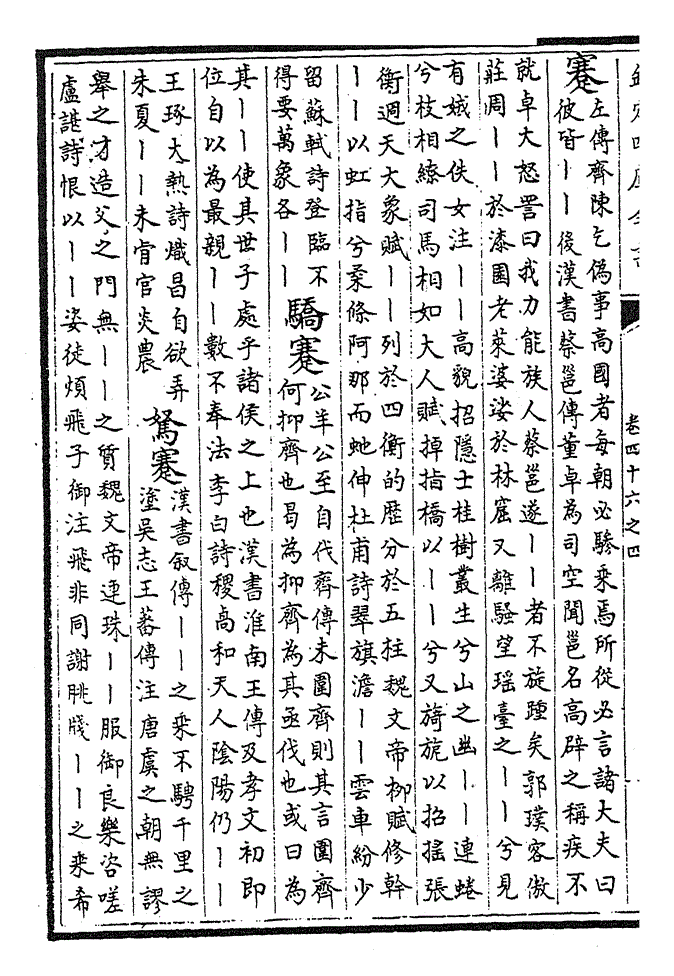 卷四十六之四
蹇
左傳齊陳乞偽事高國者每朝必驂乘焉所從必言諸大夫曰
彼皆丨丨後漢書蔡邕傳董卓為司空聞邕名高辟之稱疾不
就卓大怒詈曰我力能族人蔡邕遂丨丨者不旋踵矣郭璞客傲
莊周丨丨於漆園老萊婆娑於林窟又離騷望瑤臺之丨丨兮見
有娀之佚女注丨丨高貌招隱士桂樹叢生兮山之幽丨丨連蜷
兮枝相繚司馬相如大人賦掉指橋以丨丨兮又旖旎以招搖張
衡週天大象賦丨丨列於四衡的歷分於五柱魏文帝柳賦修幹
丨丨以虹指兮柔條阿那而虵伸杜甫詩翠旗澹丨丨雲車紛少
留蘇軾詩登臨不
得要萬象各丨丨
驕蹇
公羊公至自代齊傳未圍齊則其言圍齊
何抑齊也曷為抑齊為其亟伐也或曰為
其丨丨使其世子處乎諸侯之上也漢書淮南王傳及孝文初即
位自以為最親丨丨數不奉法李白詩稷高和天人陰陽仍丨丨
王琢大熱詩熾昌自欲弄
朱夏丨丨未肯官炎農
駑蹇
漢書叙傳丨丨之乘不騁千里之
塗吳志王蕃傳注唐虞之朝無謬
舉之才造父之門無丨丨之質魏文帝連珠丨丨服御良樂咨嗟
盧諶詩恨以丨丨姿徒煩飛子御注飛非同謝朓牋丨丨之乘希